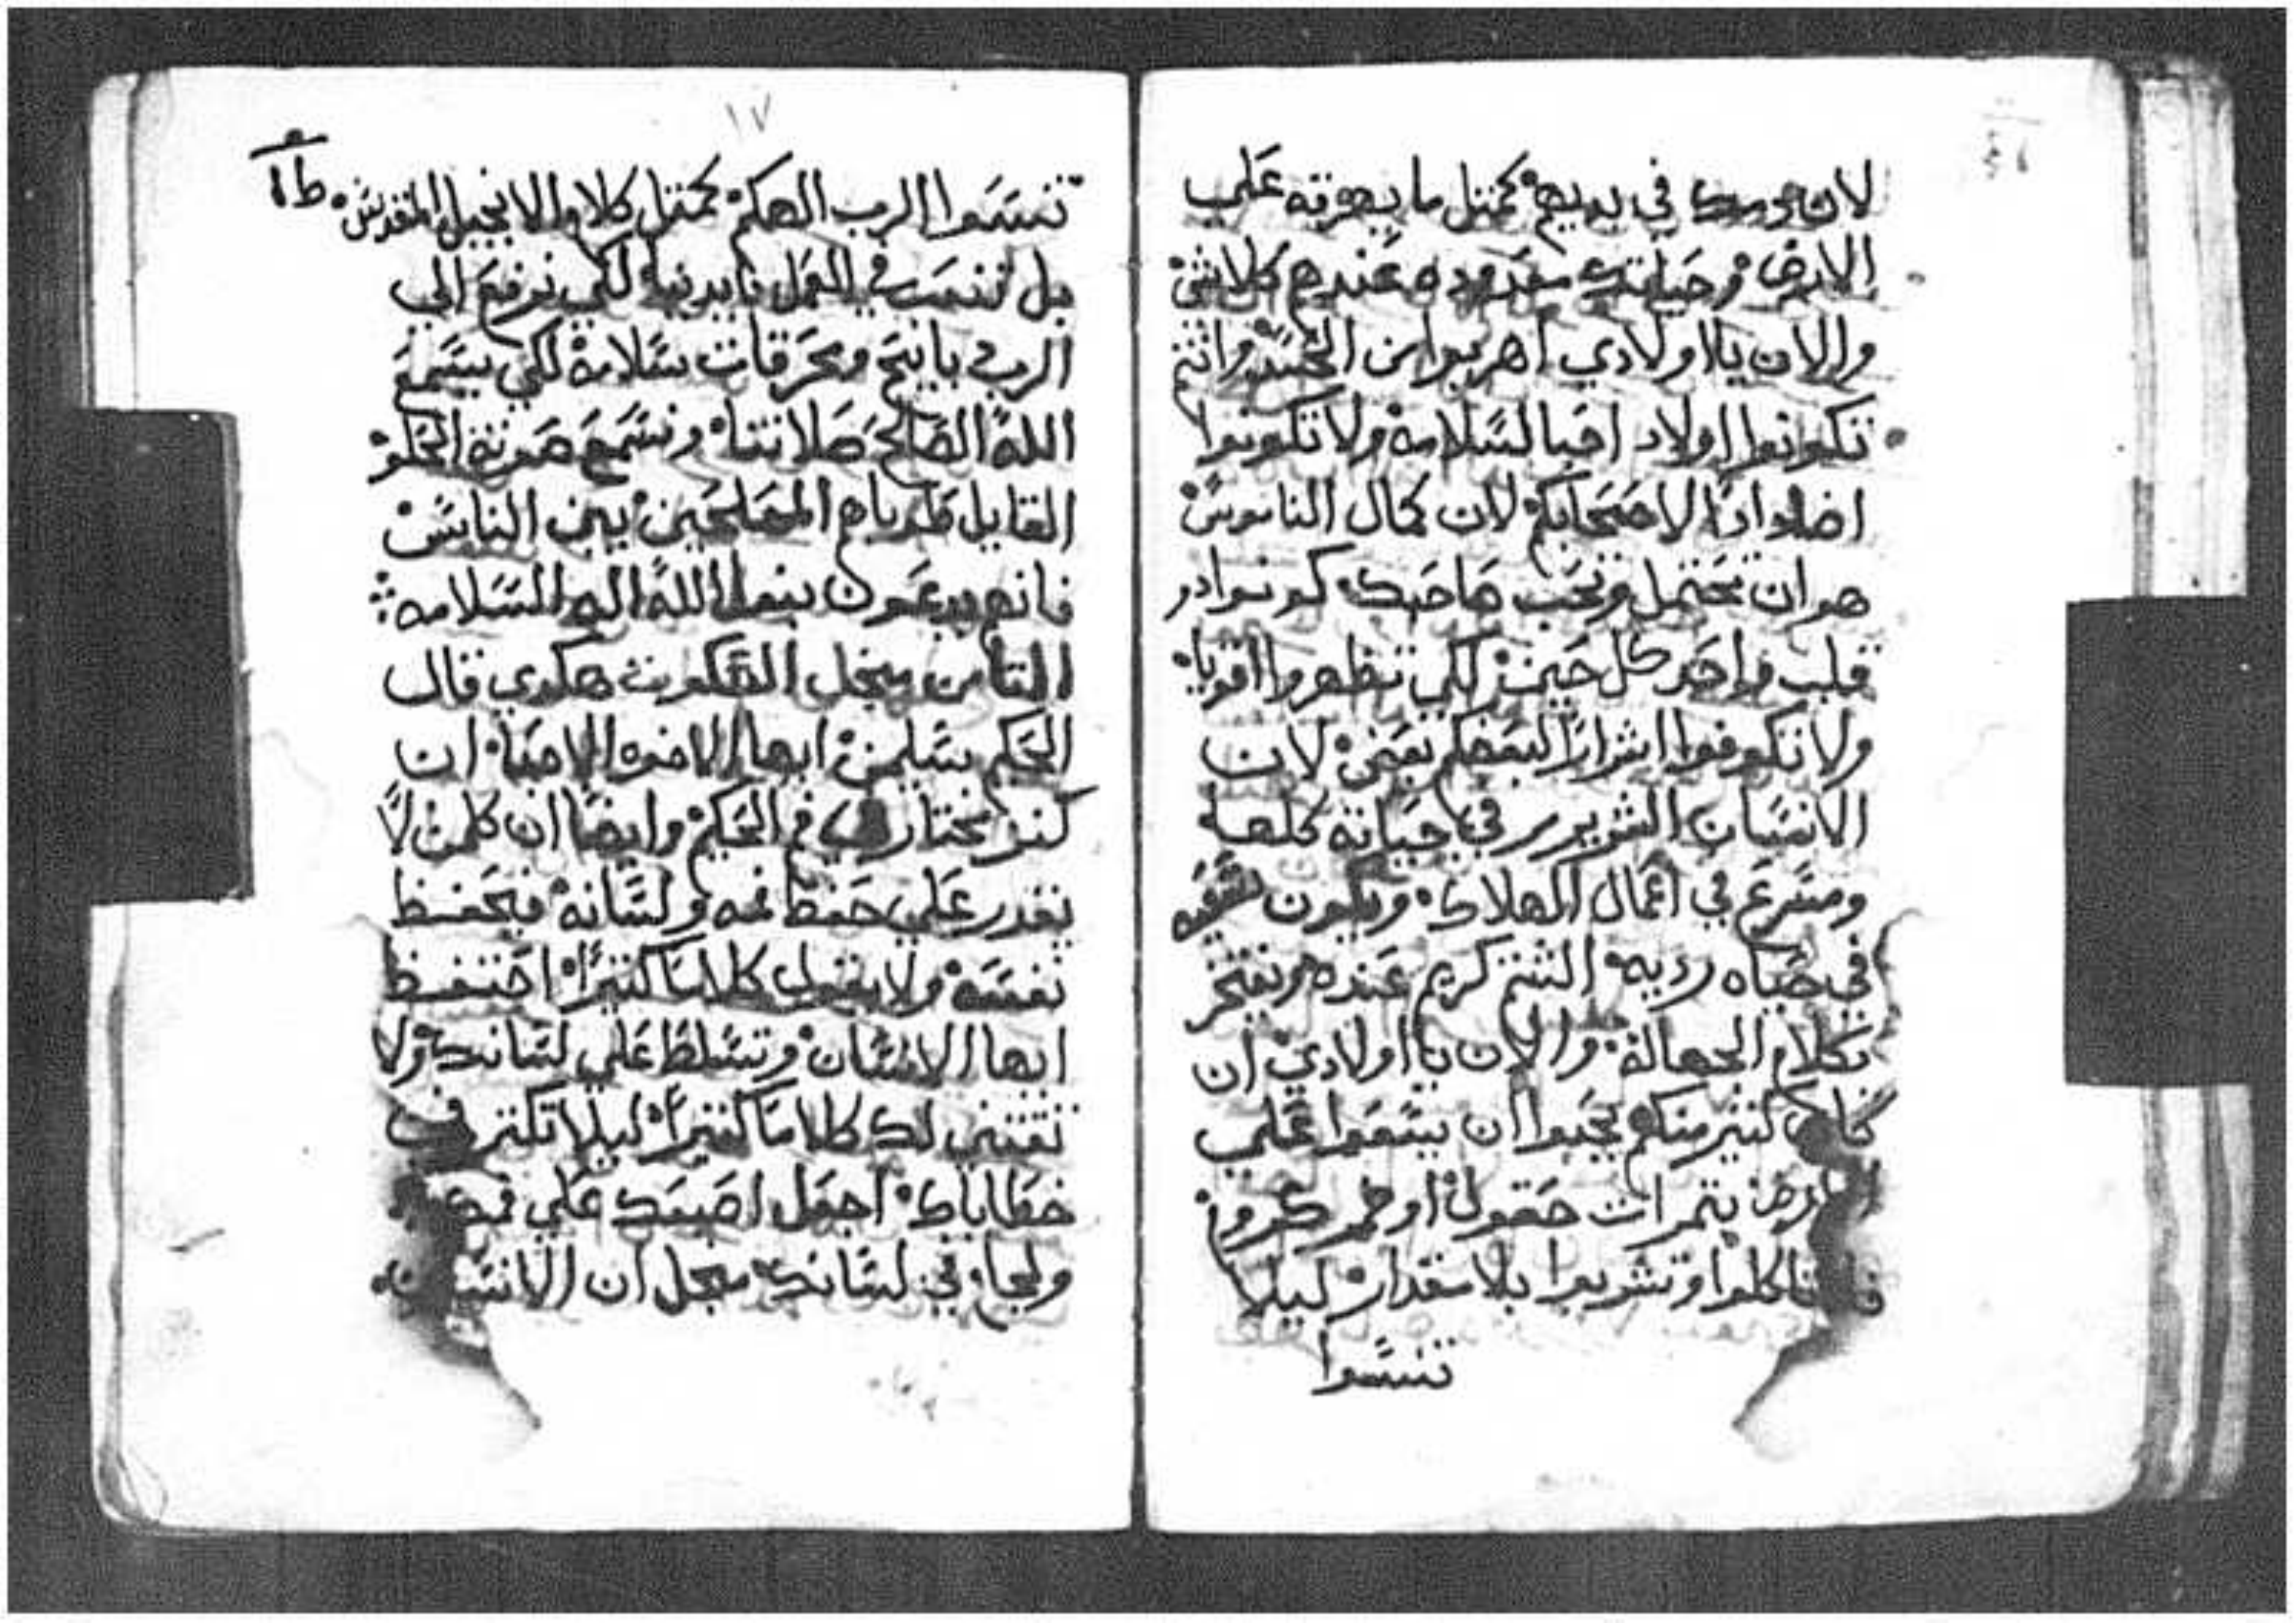 لان موسك في يديهم كمثل ما يهرته علي
الارض وحياتك معدوده عندهم كلاشئ
والان يا اولادي اهربوا من الحسد وانتم
تكونوا اولاد احبا لسلامه ولا تكونوا
اضدادا لاصحابكم لان كمال الناموس
هو ان تحتمل وتحب صاحبك كونوا در
قلب واحد كل حين لكي تظهروا اقويا
ولا تكونوا اشرارا لبعضكم بعض لان
الانسان الشرير في حياته كلها
ومسرع في اعمال الهلاك ويكون
في حياه رديه الشتم كريم عنده ويفتخر
بكلام الجهاله والان يا اولادي ان
كان كثير منكم يحبوا ان يسعوا علي
الارض بثمرات حقول او خمر كروم
فتاكلوا وتشربوا بلا مقدار ليلا
تنسوا
١٧
تنسوا الرب الهكم كمثل كلام الانجيل المقدس
بل نتعب في العمل بايدينا لكي نرفع الي
الرب بايتح ومحرقات سلامه لكي يسمع
الله الصالح صلاتنا ونسمع صوته الحلو
القايل طوباهم المصلحين بين الناس
فانهم يدعون بنوا الله اله السلامه
الثامن منجل السكوت هكدي قال
الحكم سليمن ايها الاخوه الاحبا ان
كنز مختار في فم الحكيم وايضا ان كلمن لا
يقدر علي حفظ فمه ولسانه فيحفظ
نفسه ولا يقول كلاما كثيرا احتفظ
ايها الانسان وتسلط علي لسانك ولا
تقتني لك كلاما كثيرا ليلا تكتر في
خطاياك اجعل اصبعك علي فمك
ولجام في لسانك منجل ان الانسان